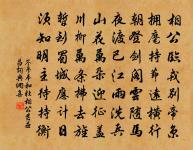 相公臨戎別帝京
擁麾持節遠橫行
朝登劍閣雲隨馬
夜渡巴江雨洗兵
山花萬朵迎征蓋
川柳千條拂去旌
暫到蜀城應計日
須知明主待持衡
岑參奉和杜相公發益
昌